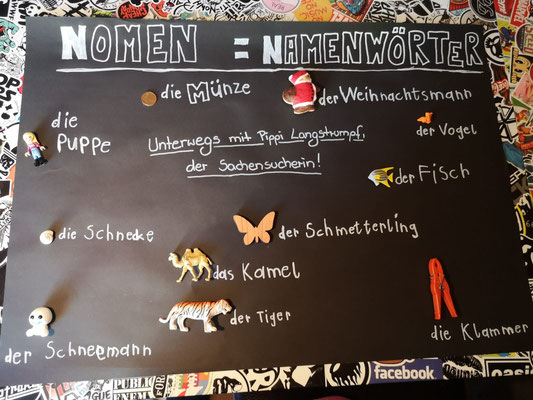 NOMEN = NAMENWÖRTER
die MÜnze
der Weihnachtsmann
die PUPPe
der Vogel
Unterwegs mit Pippi Langstrumpf,
der Sachensucherin!
der FiSch
die Schnecke
der Schmetterling
das Kamel
der Tiger
die Klammer
der Schneemann
facebook
PUBLIC
ENEMY